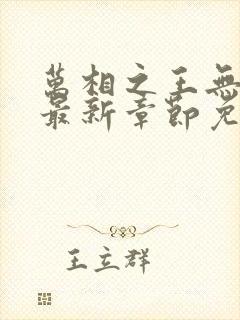 萬相之王無
最新章節免
王立群